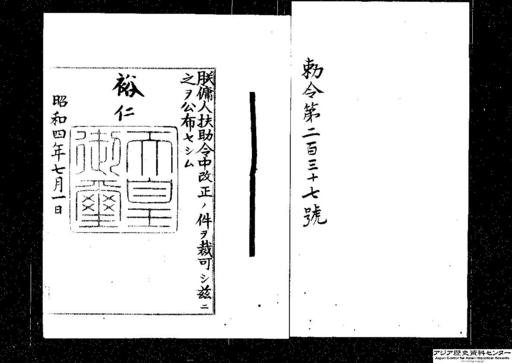 勅令第二百三十七號
朕傭人扶助令中改正ノ件ヲ裁可シ茲ニ
之ヲ公布セシム
裕仁
天皇
御璽
昭和四年七月一日
アジア歴史資料センター
Japan Center for Asian Historical Records